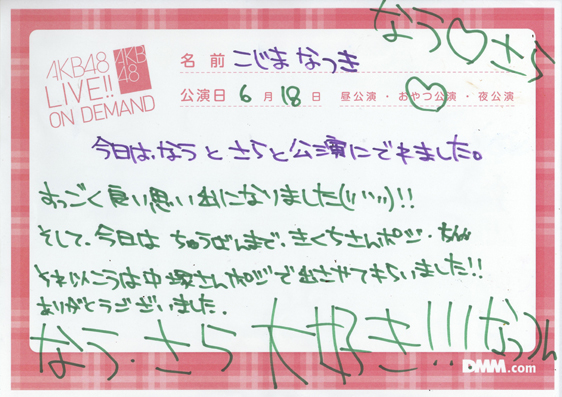 なう♡さら
AKB48
LIVE!!
ON DEMAND
AKB
48
名前 こじまなつき
公演日 6月18日 昼公演・おやつ公演・夜公演
今日は、なうとさらと公演にでれました。
すっごく良い思い出になりました(''⌣'')!!
そして、今日はちゅうばんまで、きくちさんポジ・
それいこうは中塚さんポジで出させてもらいました!!
ありがとうございました.
なう・さら大好き!!!なっつん
DMM.com